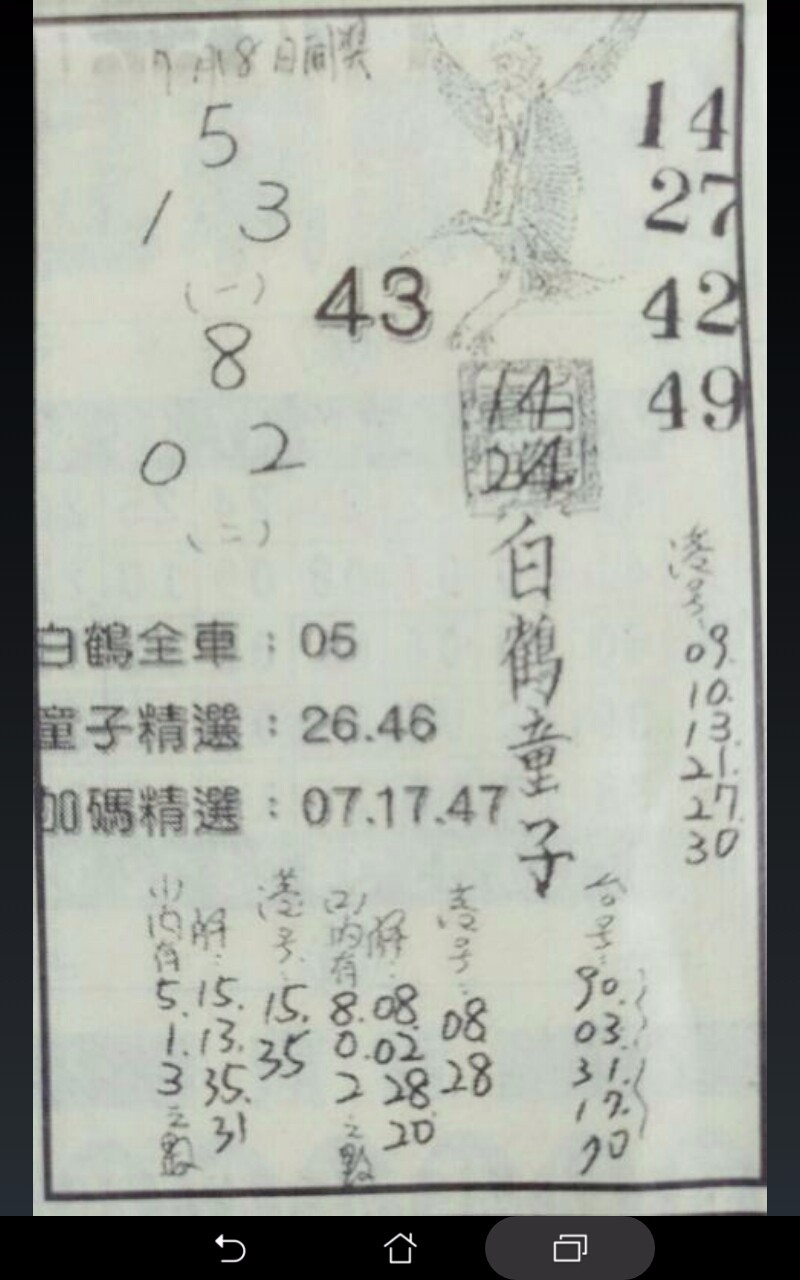 7月18日開獎
5
1 3
(一)
8
0 2
(二)
43
14
27
42
49
14
24
白鶴童子
港号:
09.
10.
13.
21.
27.
30
白鶴全車：05
童子精選：26.46
加碼精選：07.17.47
(一)內有
5.
1.
3
之數
解:
15.
13.
35.
31
港号:
15.
35
(二)內有
8.
0.
2
之數
解:
08.
02
28
20
港号:
08
28
台号:
90.
03.
31.
17.
70